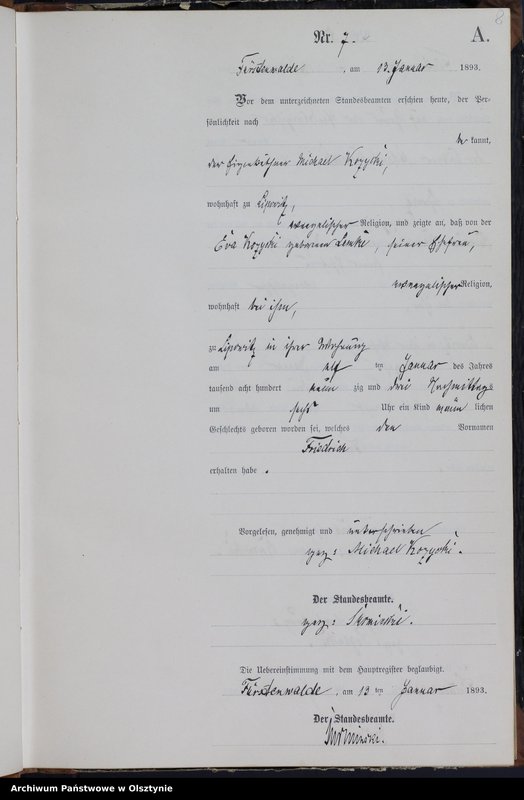 8
Nr. 7. A.
Fürstenwalde, am 13. Januar 1893.
Vor dem unterzeichneten Standesbeamten erschien heute, der Per-
sönlichkeit nach
be kannt,
der Eigenkäthner Michael Kozyski,
wohnhaft zu Lipowitz,
evangelischer Religion, und zeigte an, daß von der
Eva Kozyski geborenen Lemke, seiner Ehefrau,
evangelischer Religion,
wohnhaft bei ihm,
zu Lipowitz in ihrer Wohnung
am elf ten Januar des Jahres
tausend acht hundert neun zig und drei Nachmittags
um sechs Uhr ein Kind männ lichen
Geschlechts geboren worden sei, welches den Vornamen
Friedrich
erhalten habe.
Vorgelesen, genehmigt und unterschrieben
gez: Michael Kozyski.
Der Standesbeamte.
gez:
Die Uebereinstimmung mit dem Hauptregister beglaubigt.
Fürstenwalde, am 13 ten Januar 1893.
Der Standesbeamte.
Archiwum Państwowe w Olsztynie